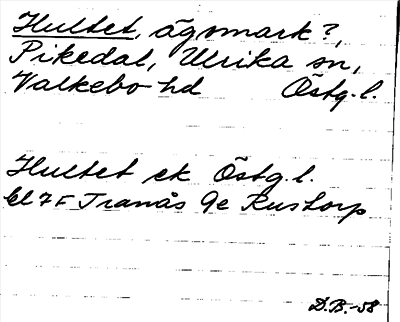 Hultet, ägomark?,
Pikedal, Ulrika sn,
Valkebo hd Östg.l.
Hultet ek Östg.l.
bl 7F Tranås 9e Rustorp
D.B.-58